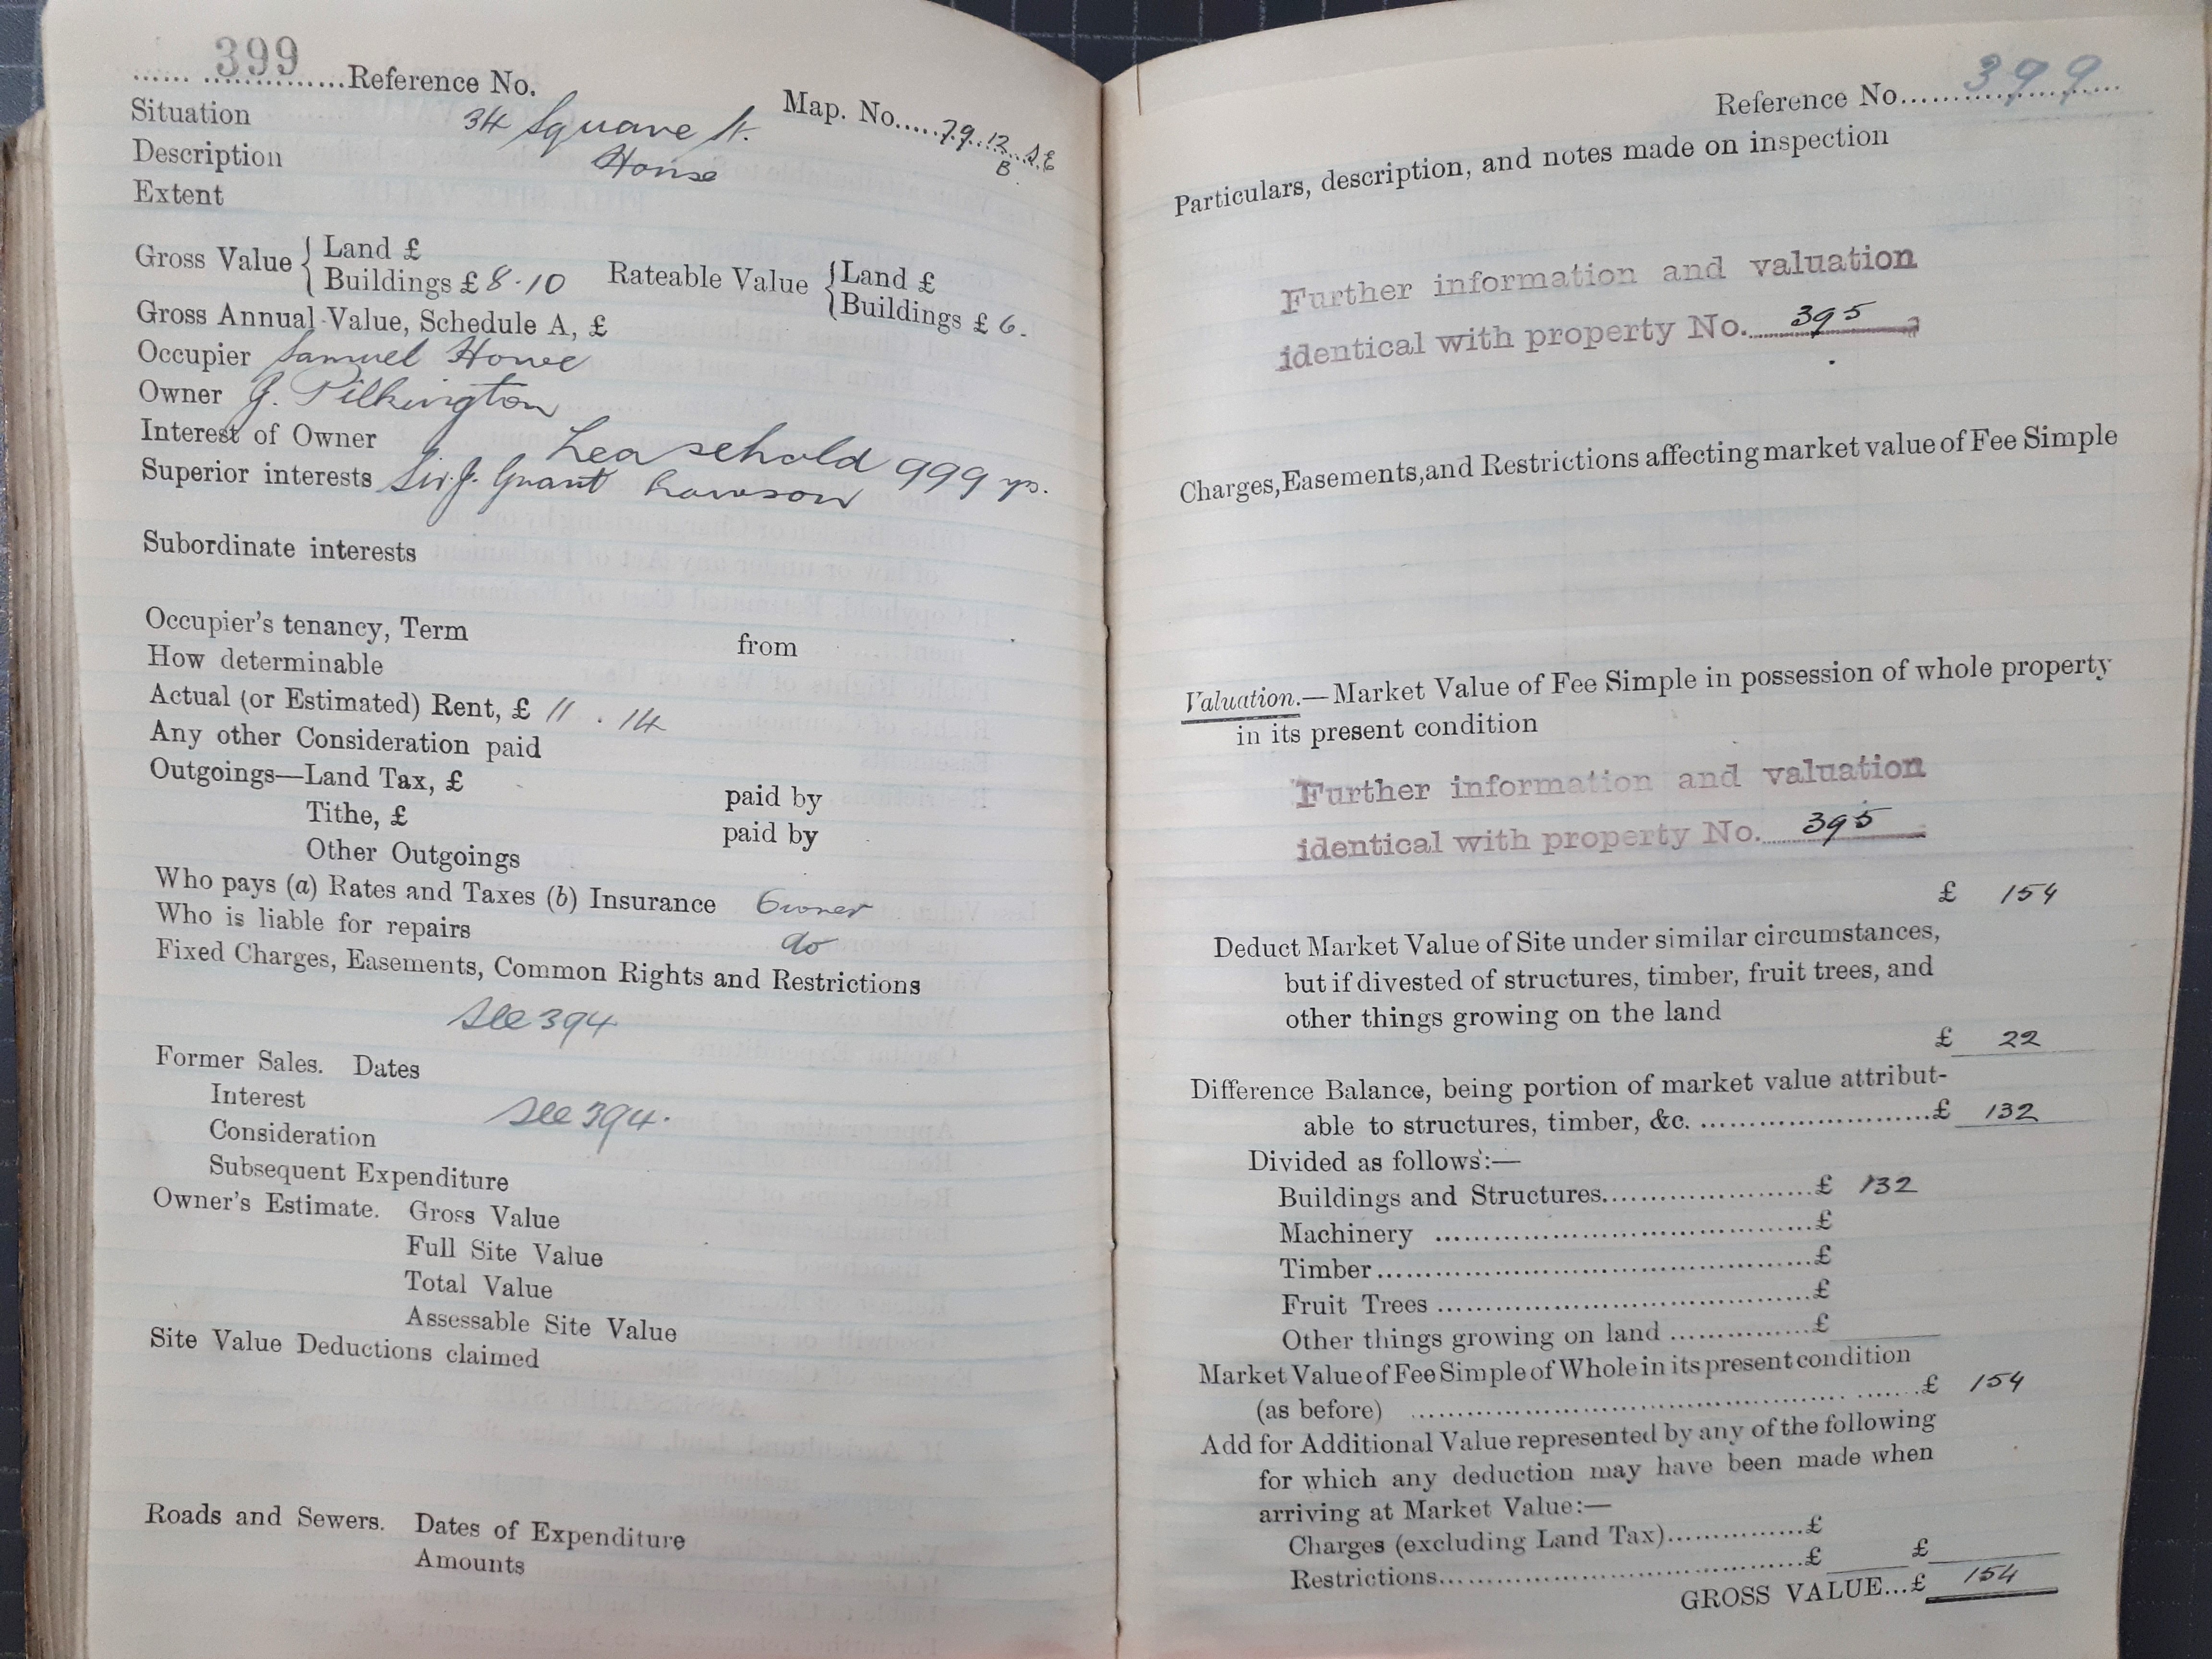 399 Reference No. Map. No. 79.12 S.E
B
Situation 34 Square St.
Description House
Extent
Gross Value { Land £
Buildings £ 8.10
Rateable Value { Land £
Buildings £ 6.
Gross Annual Value, Schedule A, £
Occupier Samuel Howe
Owner J. Pilkington
Interest of Owner Leasehold 999 yrs.
Superior interests Sir J. Grant Lawson
Subordinate interests
Occupier's tenancy, Term from
How determinable
Actual (or Estimated) Rent, £ 11 . 14
Any other Consideration paid
Outgoings—Land Tax, £ paid by
Tithe, £ paid by
Other Outgoings
Who pays (a) Rates and Taxes (b) Insurance Owner
Who is liable for repairs do
Fixed Charges, Easements, Common Rights and Restrictions
See 394
Former Sales. Dates
Interest
See 394.
Consideration
Subsequent Expenditure
Owner's Estimate. Gross Value
Full Site Value
Total Value
Assessable Site Value
Site Value Deductions claimed
Roads and Sewers. Dates of Expenditure
Amounts
Reference No. 399
Particulars, description, and notes made on inspection
Further information and valuation
identical with property No. 395
Charges, Easements, and Restrictions affecting market value of Fee Simple
Valuation.—Market Value of Fee Simple in possession of whole property
in its present condition
Further information and valuation
identical with property No. 395
£ 154
Deduct Market Value of Site under similar circumstances,
but if divested of structures, timber, fruit trees, and
other things growing on the land
£ 22
Difference Balance, being portion of market value attribut-
able to structures, timber, &c. £ 132
Divided as follows:—
Buildings and Structures £ 132
Machinery £
Timber £
Fruit Trees £
Other things growing on land £
Market Value of Fee Simple of Whole in its present condition
(as before) £ 154
Add for Additional Value represented by any of the following
for which any deduction may have been made when
arriving at Market Value:—
Charges (excluding Land Tax) £
Restrictions £ £
GROSS VALUE...£ 154